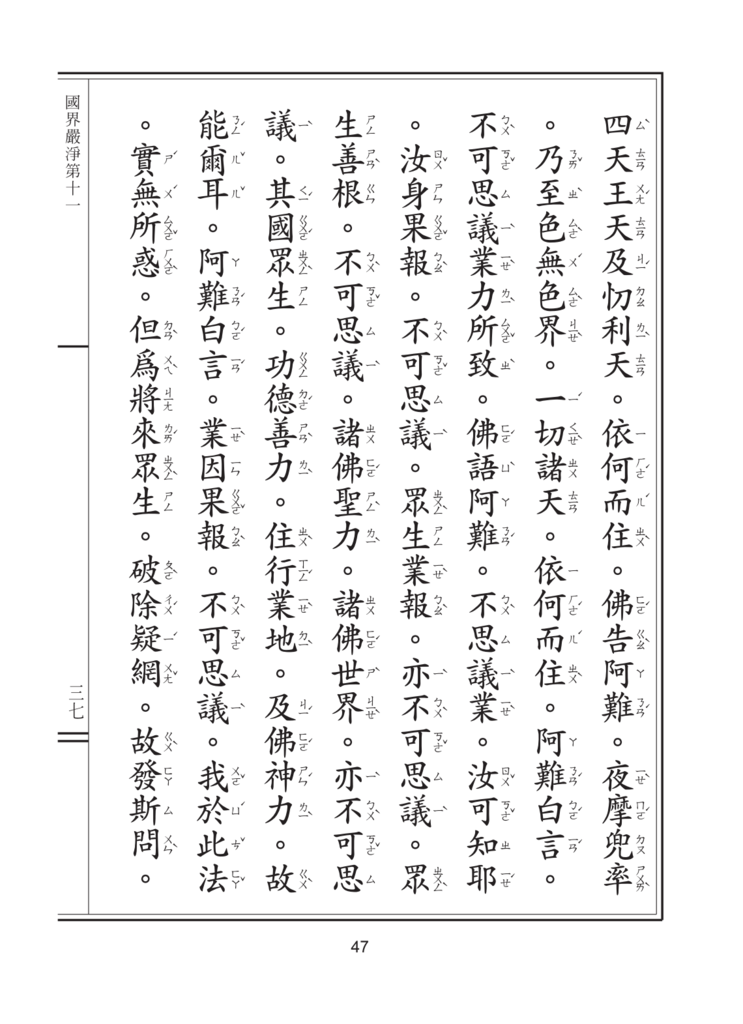 四天王天及忉利天。依何而住。佛告阿難。夜摩兜率
。乃至色無色界。一切諸天。依何而住。阿難白言。
不可思議業力所致。佛語阿難。不思議業。汝可知耶
。汝身果報。不可思議。眾生業報。亦不可思議。眾
生善根。不可思議。諸佛聖力。諸佛世界。亦不可思
議。其國眾生。功德善力。住行業地。及佛神力。故
能爾耳。阿難白言。業因果報。不可思議。我於此法
。實無所惑。但為將來眾生。破除疑網。故發斯問。
國界嚴淨第十一
三七
47